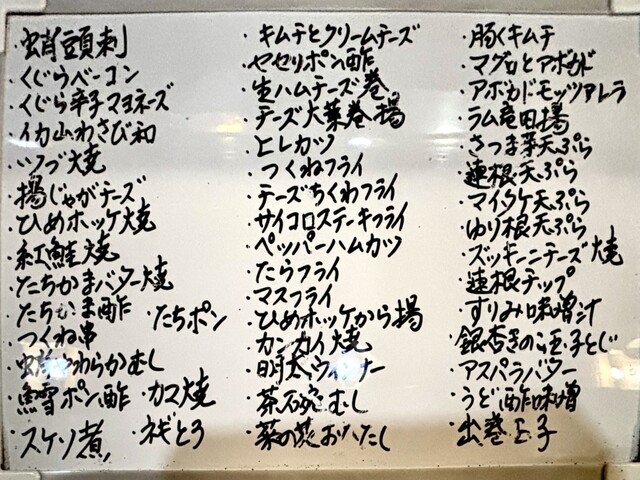 ・蛸頭刺
・くじらベーコン
・くじら辛子マヨネーズ
・イカ山わさび和
・ツブ焼
・揚じゃがチーズ
・ひめホッケ焼
・紅鮭焼
・たちかまバター焼
・たちかま酢 ・たちポン
・つくね串
・蛸やわらかむし
・鱈ポン酢 ・カマ焼
・スケソ煮 ・ネギとろ
・キムチとクリームチーズ
・ヤセリポン酢
・生ハムチーズ巻
・チーズ大葉巻揚
・ヒレカツ
・つくねフライ
・チーズちくわフライ
・サイコロステーキフライ
・ペッパーハムカツ
・たらフライ
・マスフライ
・ひめホッケから揚
・カンカイ焼
・明太ウィンナー
・茶碗むし
・菜の花おひたし
・豚くキムチ
・マグロとアボカド
・アボカドモッツァレラ
・ラム竜田揚
・さつま芋天ぷら
・蓮根天ぷら
・マイタケ天ぷら
・ゆり根天ぷら
・ズッキーニチーズ焼
・蓮根チップ
・すりみ味噌汁
・銀杏きのこ玉子とじ
・アスパラバター
・うど酢味噌
・出巻玉子